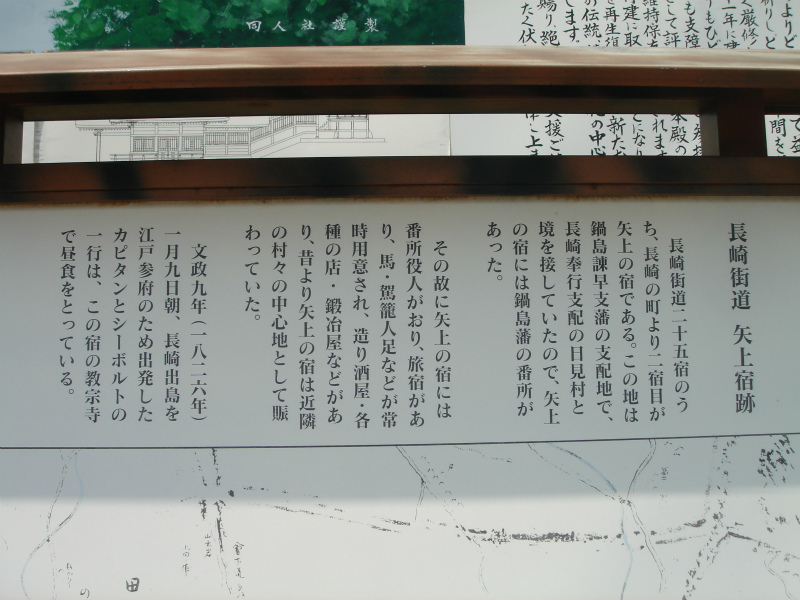 同人社謹製
長崎街道 矢上宿跡
長崎街道二十五宿のう
ち、長崎の町より二宿目が
矢上の宿である。この地は
鍋島諫早支藩の支配地で、
長崎奉行支配の日見村と
境を接していたので、矢上
の宿には鍋島藩の番所が
あった。
その故に矢上の宿には
番所役人がおり、旅宿があ
り、馬・駕籠人足などが常
時用意され、造り酒屋・各
種の店・鍛冶屋などがあ
り、昔より矢上の宿は近隣
の村々の中心地として賑
わっていた。
文政九年(一八二六年)
一月九日朝、長崎出島を
江戸参府のため出発した
カピタンとシーボルトの
一行は、この宿の教宗寺
で昼食をとっている。
田
の